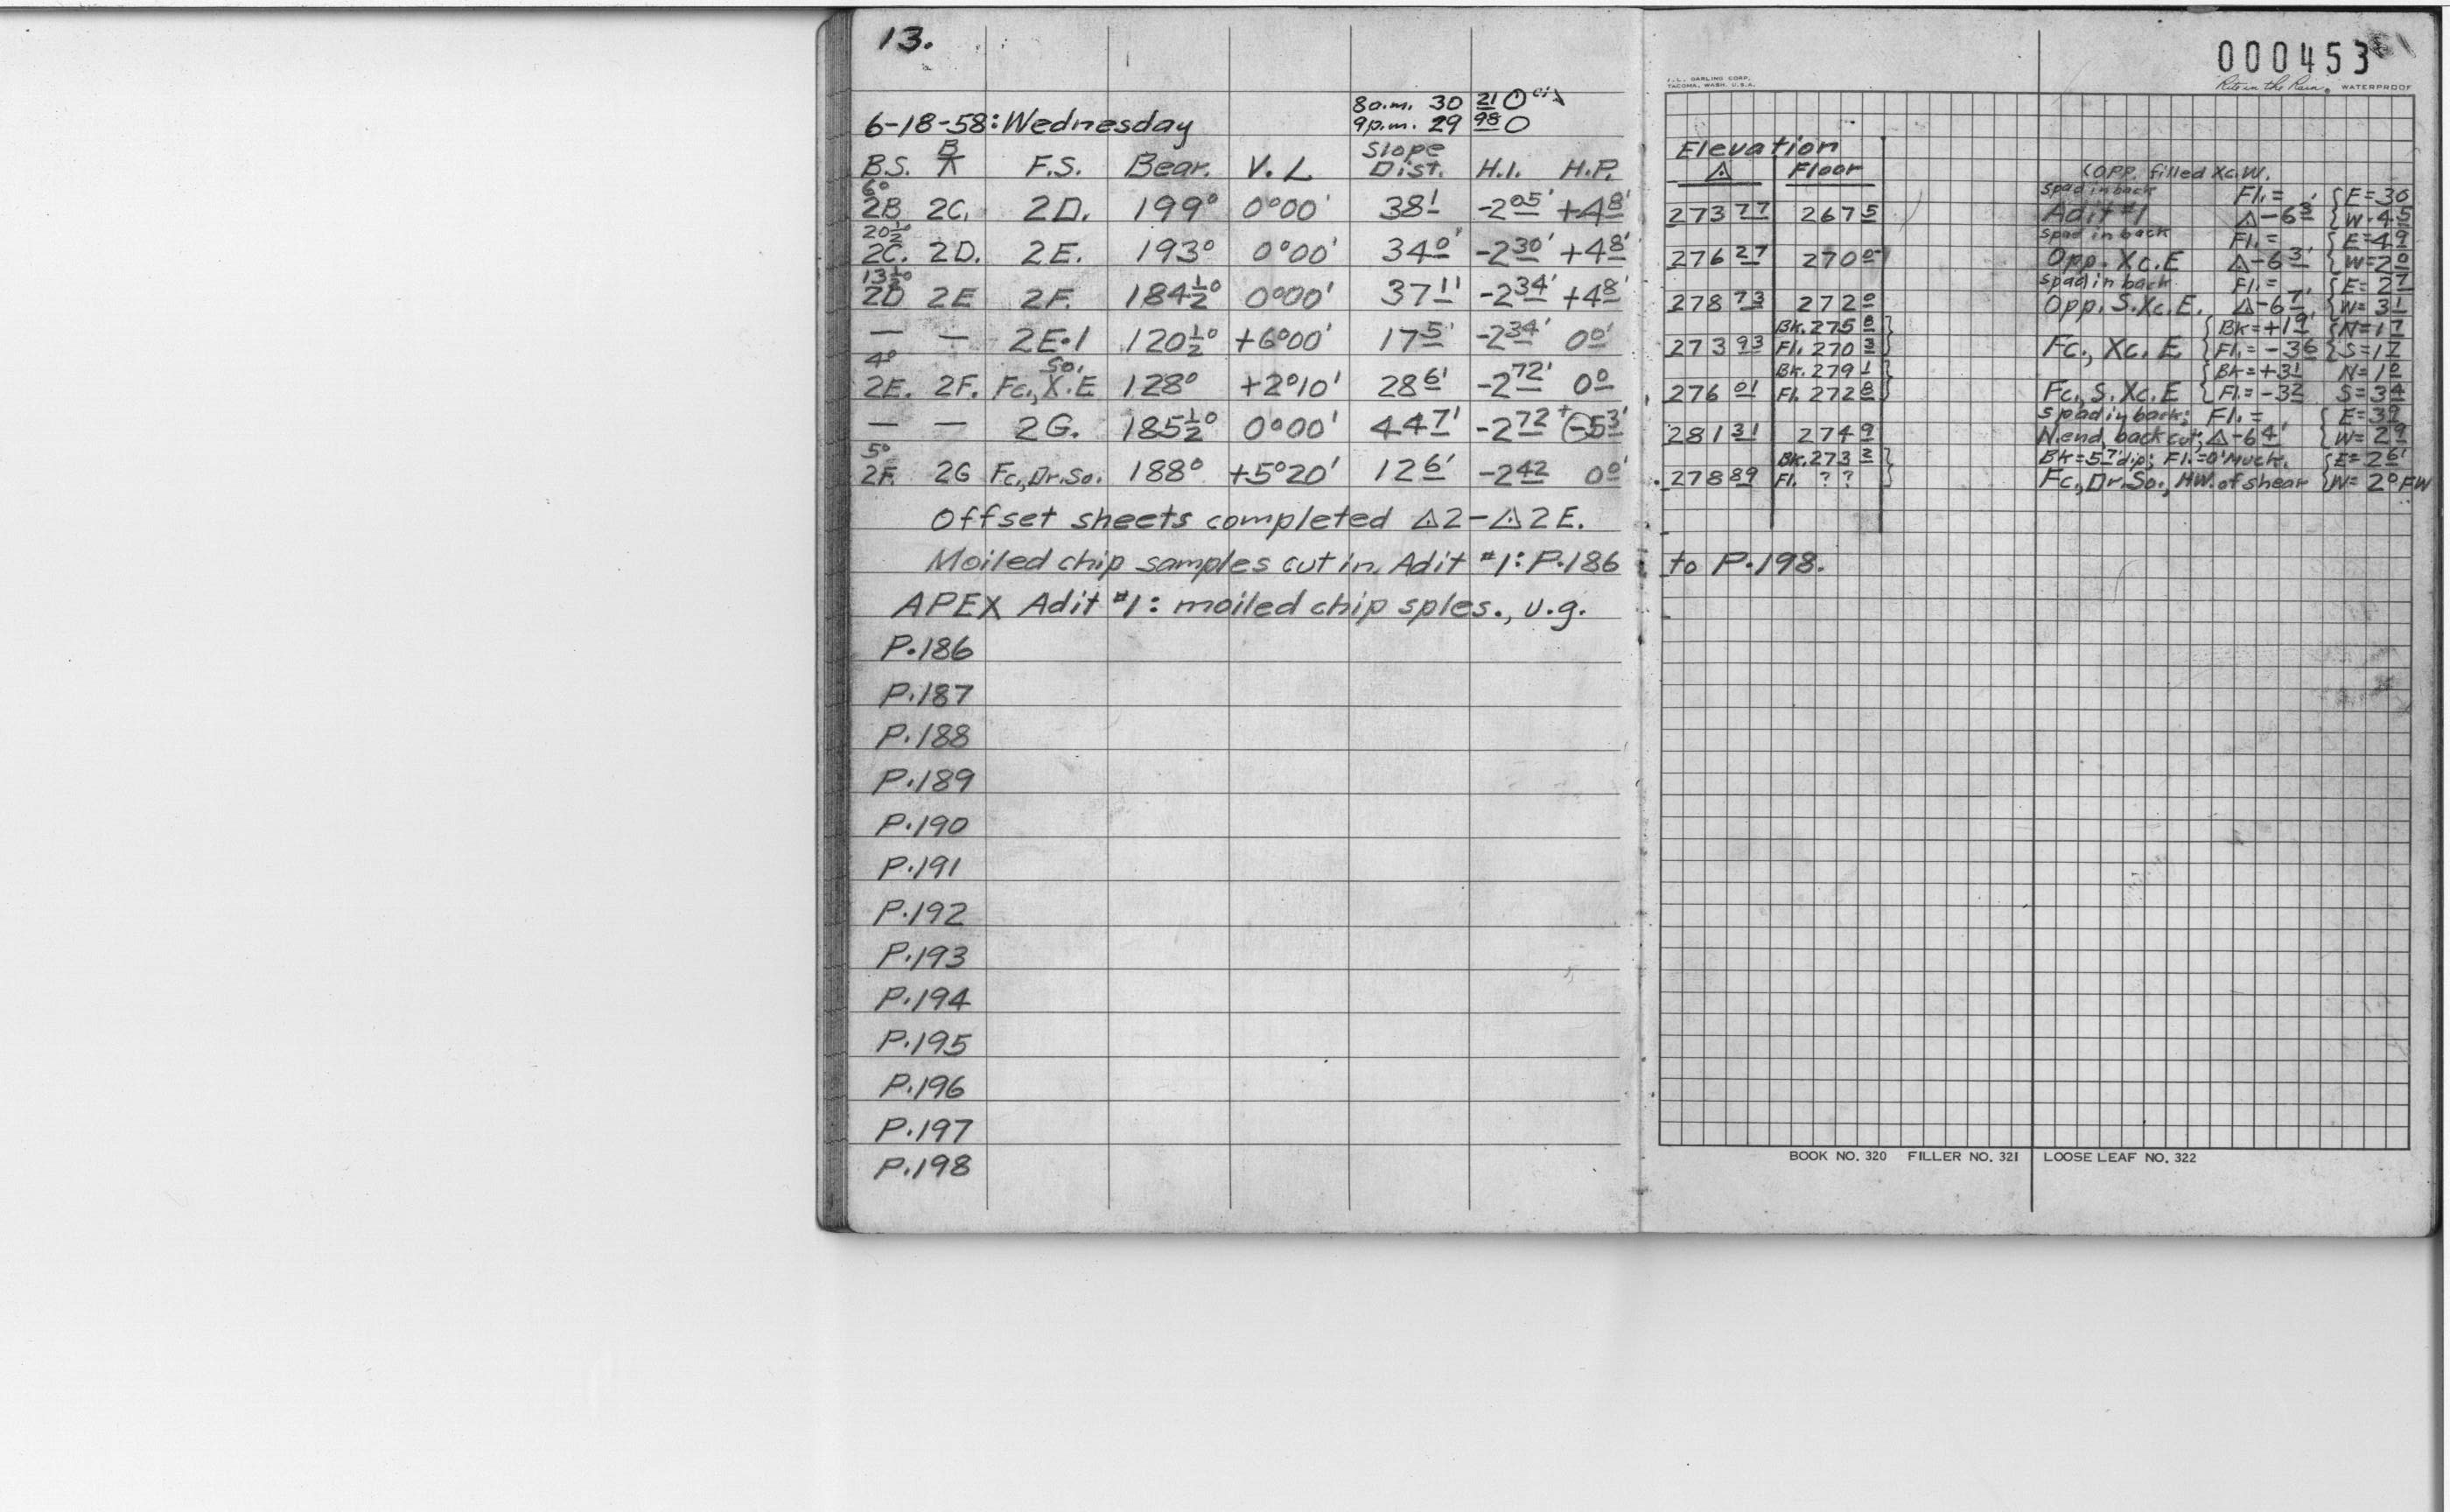 13.
8a.m. 30 21
6-18-58: Wednesday 9p.m. 29 98
B.S. ⊼ B F.S. Bear. V. L Slope Dist. H.I. H.P.
6° 2B 2C. 2D. 199° 0°00' 38 1' -2 05' +4 8'
20½° 2C. 2D. 2E. 193° 0°00' 34 0' -2 30' +4 8'
13½° 2D 2E 2F. 184½° 0°00' 37 11' -2 34' +4 8'
— — 2E.1 120½° +6°00' 17 5' -2 34' 0 0'
4° 2E. 2F. Fc., So. X.E 128° +2°10' 28 6' -2 72' 0 0
— — 2G. 185½° 0°00' 44 7' -2 72 + -5 3'
5° 2F. 2G Fc., Dr. So. 188° +5°20' 12 6' -2 42 0 0'
Offset sheets completed △2-△2E.
Moiled chip samples cut in Adit #1: P.186
APEX Adit #1: moiled chip sples., u.g.
P.186
P.187
P.188
P.189
P.190
P.191
P.192
P.193
P.194
P.195
P.196
P.197
P.198
000453
J.L. DARLING CORP.
TACOMA, WASH. U.S.A.
Rite in the Rain WATERPROOF
Elevation
△ Floor
(opp. filled Xc.W.
spad in back Fl.= {E=30
273 77 267 5 Adit #1 △-6 3' {W=4 5
spad in back Fl.= {E=4 9
276 27 270 0 Opp. Xc.E △-6 3' {W=2 0
spad in back Fl.= {E=2 7
278 73 272 0 Opp. S.Xc.E. △-6 7' {W=3 1
Bk. 275 8 {Bk=+1 9' {N=1 7
273 93 Fl. 270 3 Fc., Xc. E. {Fl.=-3 6 {S=1 7
Bk. 279 1 {Bk=+3 1 N=1 0
276 01 Fl. 272 8 Fc., S. Xc. E {Fl.=-3 2 S=3 4
spad in back; Fl.= {E=3 9
281 31 274 9 N.end, back cut; △-6 4' {W=2 9
Bk. 273 2 Bk=5 7' dip; Fl.=0' Muck. {E=2 6'
278 89 Fl. ? ? Fc., Dr. So., HW. of shear {W=2 0 FW
to P.198.
BOOK NO. 320 FILLER NO. 321 LOOSE LEAF NO. 322